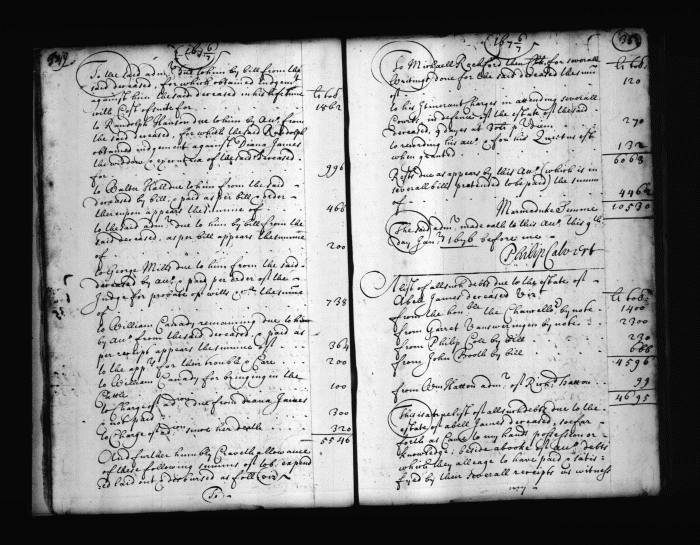 349
167 6/7
To the said adm.r due to him by bill from the
said deceased, for which obtained Judgem.t
against him the said deceased in his lifetime
with Cost of suite for
li tob:
1862
to Randolph Hanson due to him by Acc.t from
the said deceased, for which the said Randolph
obtained Judgem.t against Diana James
the widdow & executrix of the said deceased
for
996
to Walter Hall due to him from the said
deceased by bill, paid as per bill & order
thereupon appears the summe of
466
to the said adm.r due to him by bill from the
said deceased, as per bill appears the summe
of
200
to George Mills due to him from the said
deceased by Acc.t paid per order of the
Judge for probate of wills the summe
of
738
to William Canady remaining due to him
by Acc.t from the said deceased & paid as
per receipt appears the summe of
364
to the for their trouble & Care
200
to William Canady for bringing in the
Cattle
100
to Charges due from Diana James
& not paid
300
to Charge since her death
320
5546
And further humbly Craveth allowance
of these following summes of tob. expend
ed laid out & disbursed as foll. viz
To
167 6/7
To Michaell Rochford for severall
writings done for the said deceased the summ
of
li tob:
120
to his Itinerant Charges in attending severall
Courts in defence of the estate of the said
deceased, 9 dayes at 30li p diem
270
to recording his acc.t & for his Quietus est
when granted
132
6068
Rests due as appears by this Acc.t (which is in
severall bills pretended to be paid) the summ
of
4462
10530
Marmaduke Simme
The said adm.r made oath to this Acc.t this 9th
day Jan.ry 1676 before me
Philip Calvert
A list of all such debts due to the estate of
Abell James deceased viz
li tob:
from the hon.ble the Chancello.r by note
1400
from Garret Vansweringen by note
2300
from Philip Cole by bill
230
from John Booth by bill
666
4596
from Wm Hatton adm.r of Rich.d Hatton
99
4695
This is a perfect list of all such debts due to the
estate of Abell James deceased, soe far
forth as Came to my hands possession or
knowledge, beside a booke of Acc.ts debts
which they alleage to have paid & satis=
fyed by their severall receipts as witness
my